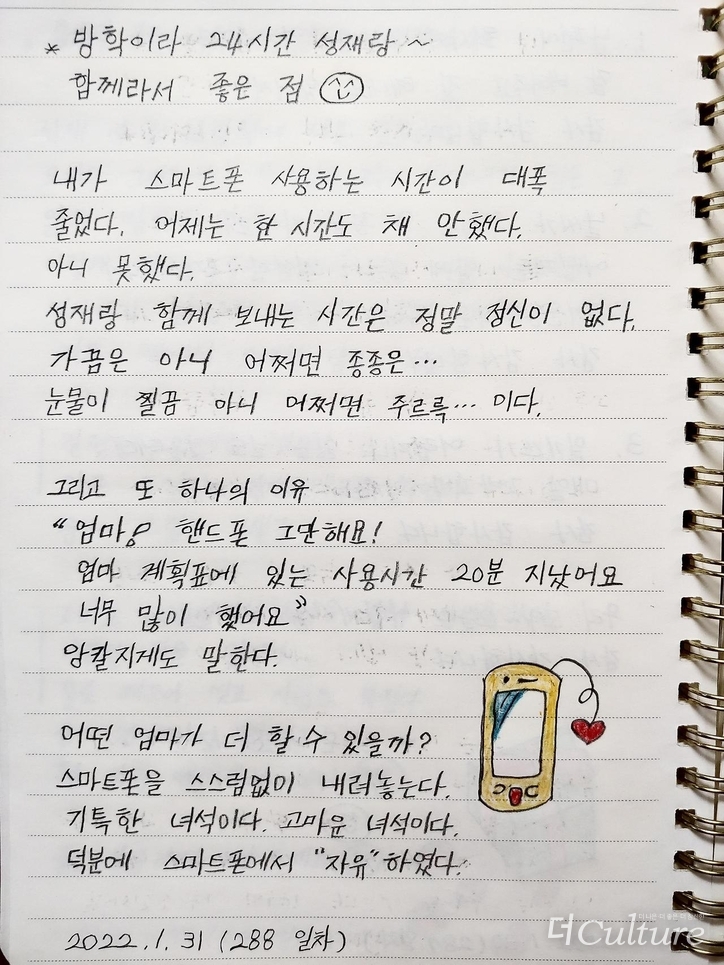 * 방학이라 24시간 성재랑~
함께라서 좋은 점
내가 스마트폰 사용하는 시간이 대폭
줄었다. 어제는 한 시간도 채 안했다.
아니 못했다.
성재랑 함께 보내는 시간은 정말 정신이 없다.
가끔은 아니 어쩌면 종종은...
눈물이 찔끔 아니 어쩌면 주르륵... 이다.
그리고 또 하나의 이유
"엄마 핸드폰 그만해요!
엄마 계획표에 있는 사용시간 20분 지났어요
너무 많이 했어요"
앙칼지게도 말한다.
어떤 엄마가 더 할 수 있을까?
스마트폰을 스스럼없이 내려놓는다.
기특한 녀석이다. 고마운 녀석이다.
덕분에 스마트폰에서 "자유"하였다.
2022.1.31 (288 일차)
더Culture